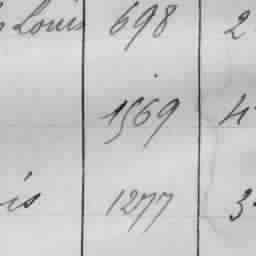 Louis 698 2
1569 4
is 1277 3